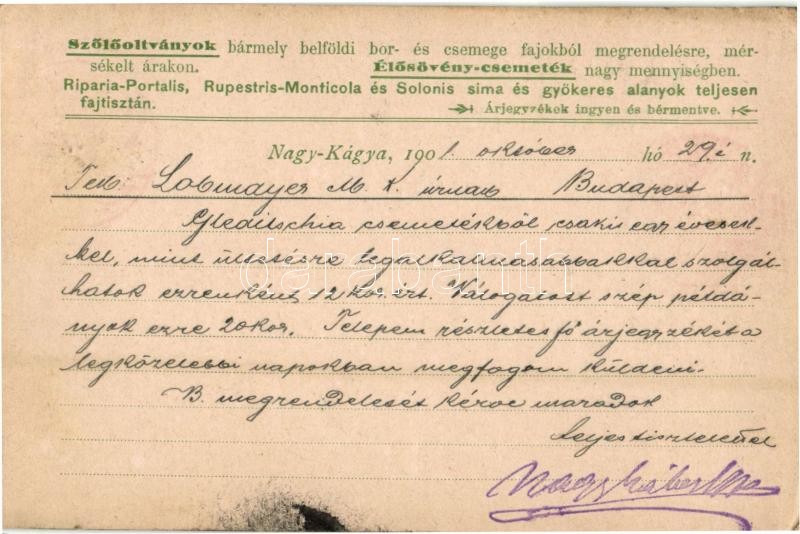 Szőlőoltványok bármely belföldi bor- és csemege fajokból megrendelésre, mér-
sékelt árakon. Élősövény-csemeték nagy mennyiségben.
Riparia-Portalis, Rupestris-Monticola és Solonis sima és gyökeres alanyok teljesen
fajtisztán. Árjegyzékek ingyen és bérmentve.
Nagy-Kágya, 1901. október hó 29.i n.
Tek. Lobmayer M. K. úrnak Budapest
Gleditschia csemetékből csakis egy évesek-
kel, mint ültetésre legalkalmasabbakkal szolgál-
hatok ezrenként 12 kor.ért. Válogatott szép példá-
nyok ezre 20 kor. Telepem részletes fő árjegyzékét a
legközelebbi napokban megfogom küldeni.
B. megrendelését kérve maradok
teljes tisztelettel
darabanth